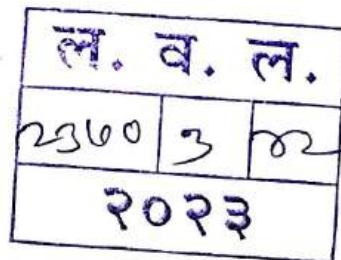 ल. व. ल.
२३७० ३
२०२३